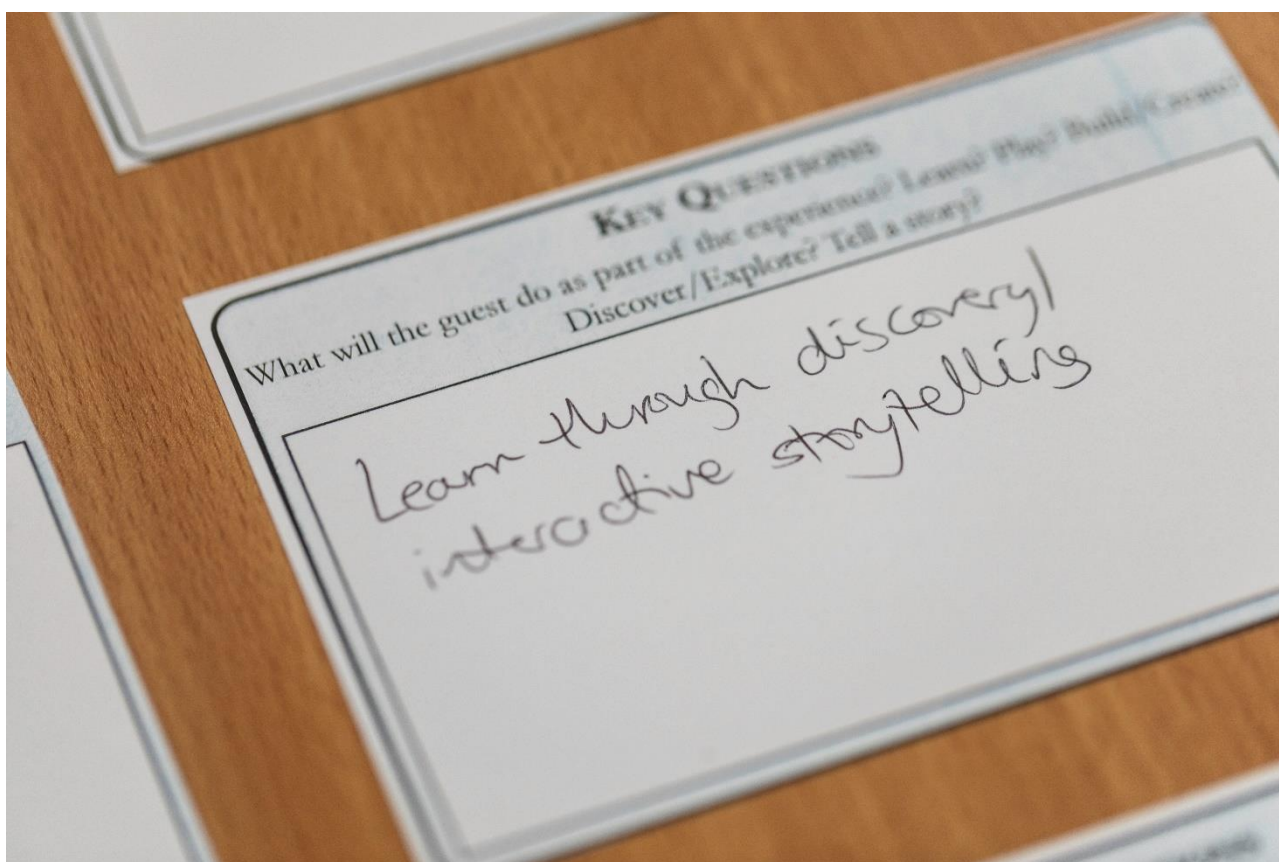 KEY QUESTIONS
What will the guest do as part of the experience? Learn? Play? Build/Create?
Discover/Explore? Tell a story?
Learn through discovery/
interactive storytelling